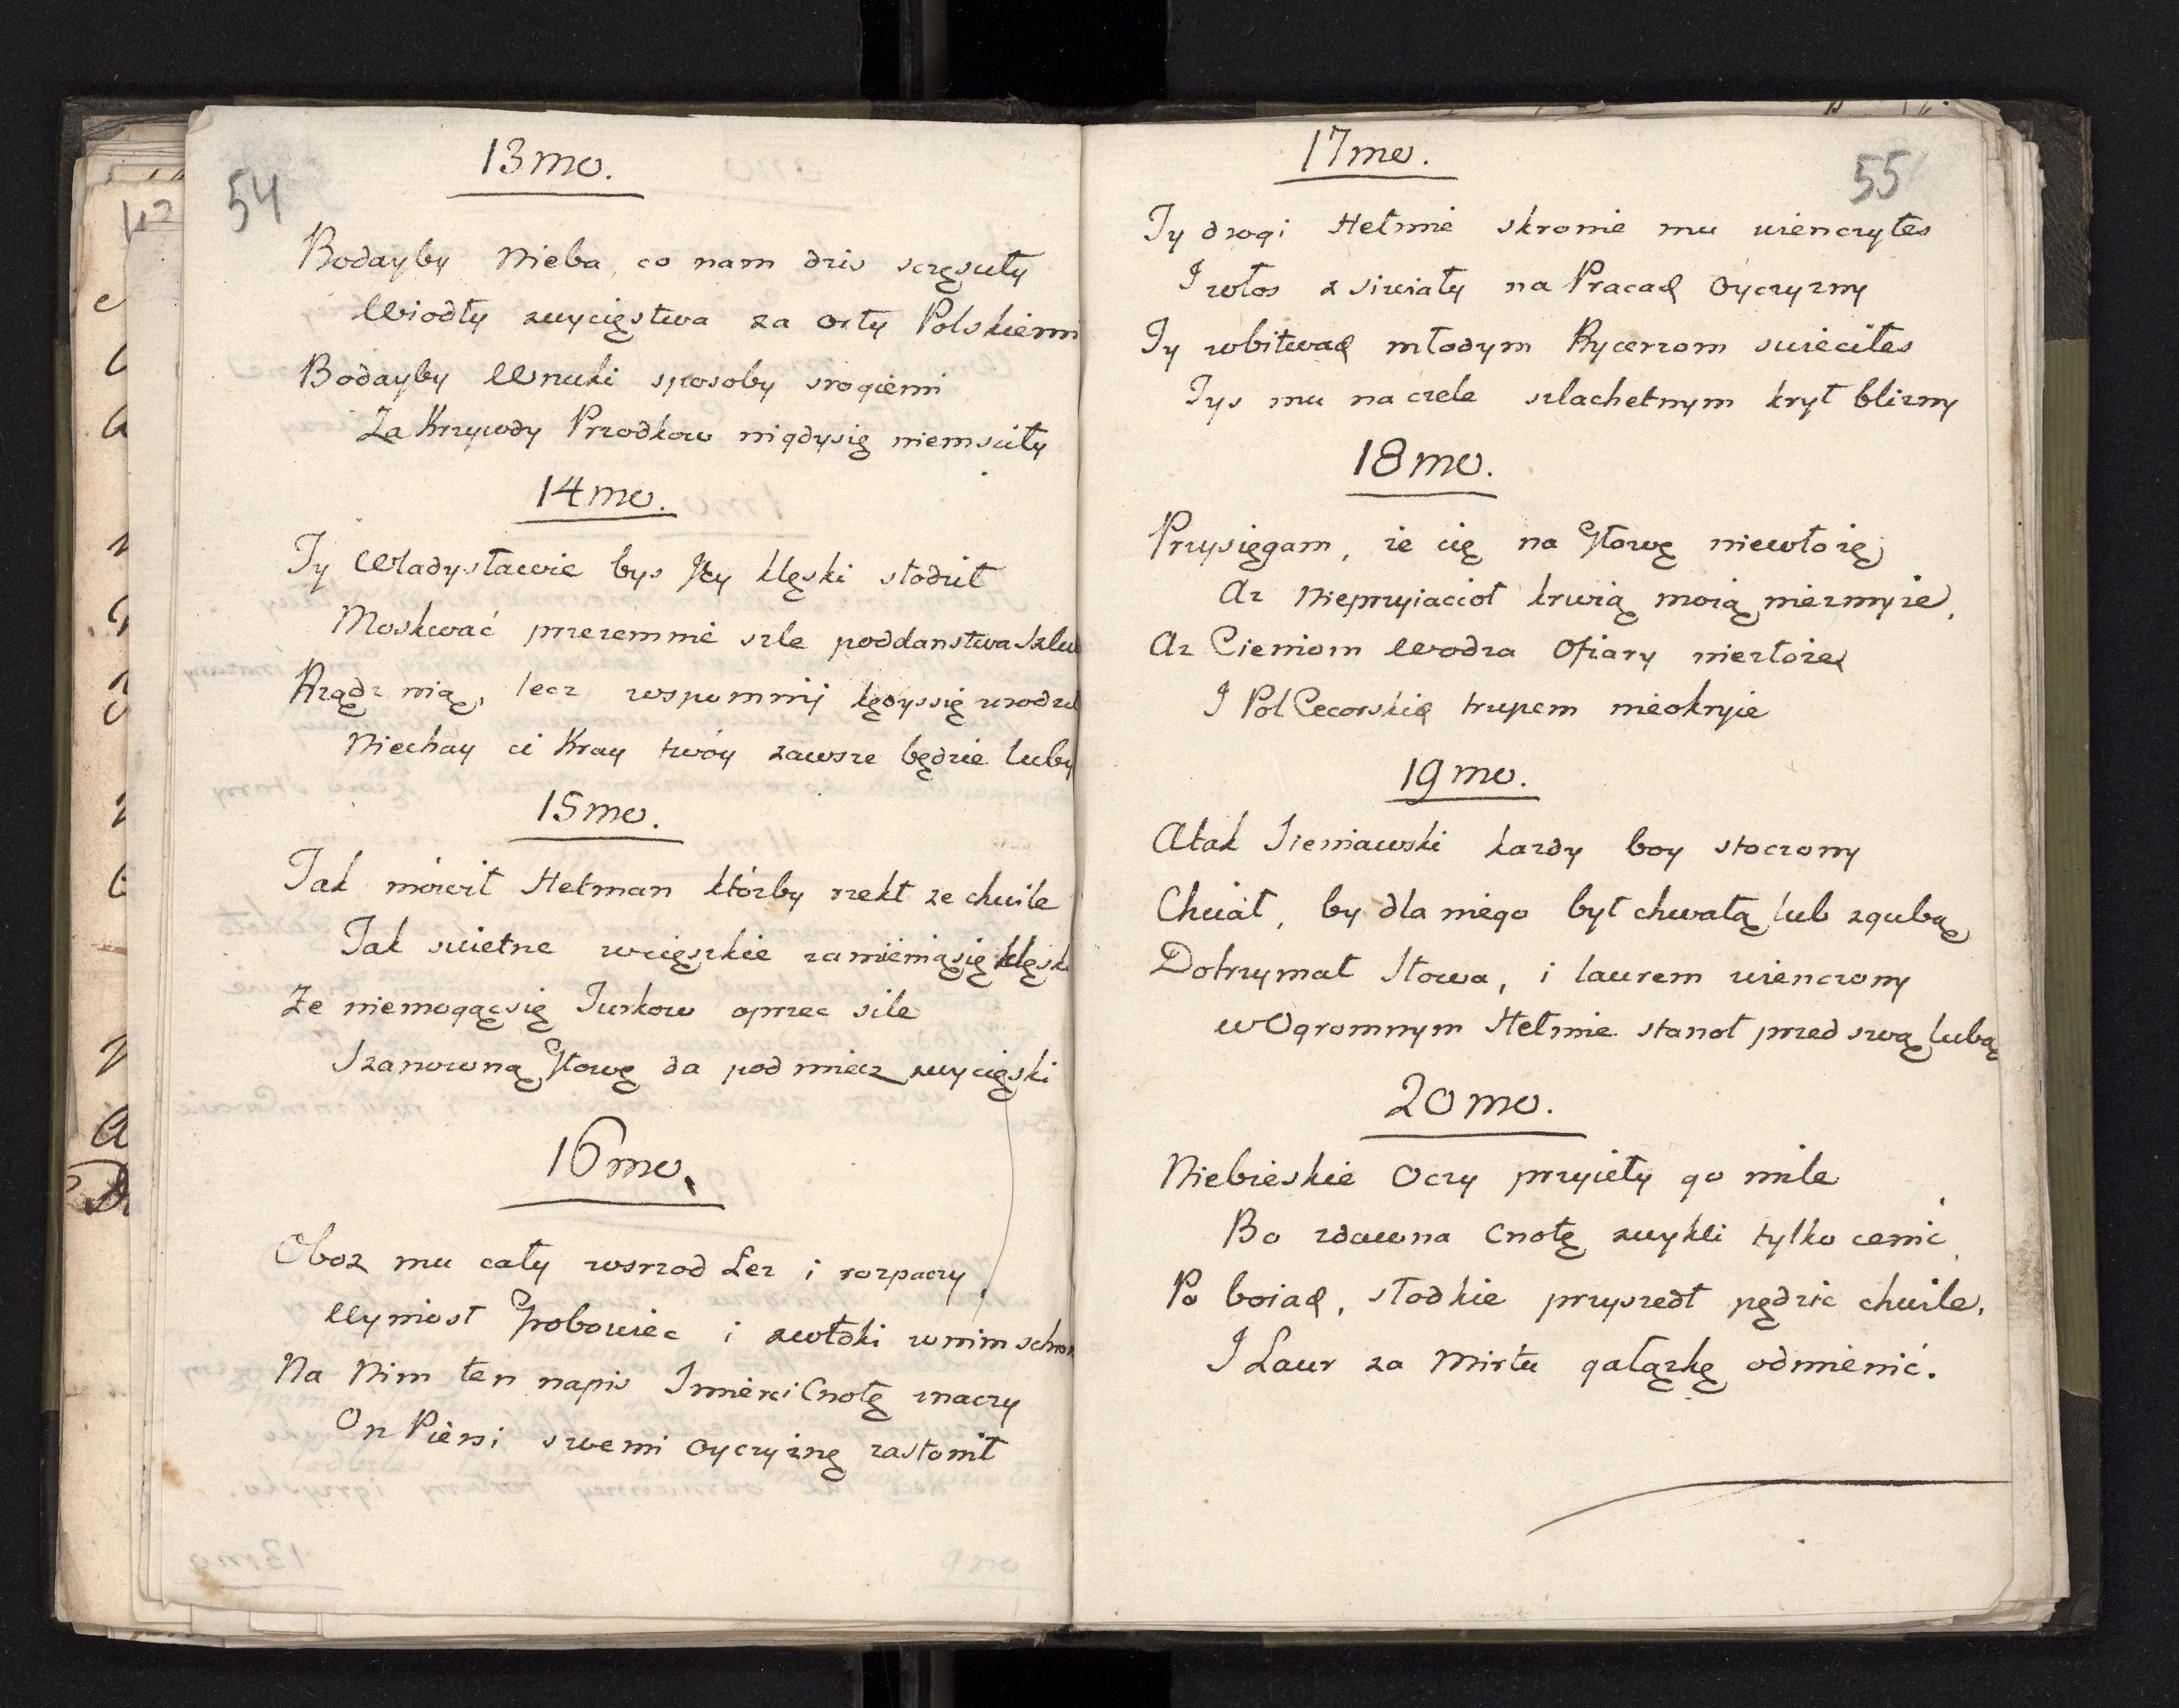 54
13mo.
Bodayby Nieba, co nam dzis sczęsciły
Wiodły zwycięstwa za orły Polskiemi
Bodayby Wnuki sposoby srogiemi
Za Krzywdy Przodkow nigdysię niemsciły
14mo.
Ty Władysławie bys łzy klęski słodził
Moskwać przezemnie szle poddanstwa
Rządz nią, lecz wspomnij kędyssię urodził
Niechay ci Kray twóy zawsze będzie luby
15mo.
Tak mówił Hetman którzby rzekł ze chwile
Tak swietne wcięszkie zamieniąsię klęski
Ze niemogącsię Turkow oprzec sile
Szanowną Głowę da pod miecz zwycięski
16mo.
Oboz mu cały wsrzod Łez i rozpaczy
Wyniosł Grobowiec i zwłoki wnim
Na Nim ten napis Smierć i Cnotę znaczy
On Piersi swemi oyczyznę zasłonił
55
17mo.
Ty drogi Hełmie skronie mu wienczyłes
I włos zsiwiały na Pracach oyczyzny
Ty wbitwach młodym Rycerzom swieciłes
Tys mu na czele szlachetnym krył blizny
18mo.
Przysięgam, ze cię na Głowę niewłożę
Az Nieprzyiacioł krwią moią niezmyie,
Az Cieniom Wodza Ofiary niezłożę
I Pol Cecorskich trupem nieokryie
19mo.
Atak Sieniawski kazdy boy stoczony
Chciał, by dla niego był chwałą lub zgubą
Dotrzymał słowa, i laurem wienczony
wOgromnym Hełmie stanoł przed swą lubą
20mo.
Niebieskie Oczy przyieły go mile
Bo zdawna Cnotę zwykli tylko cenic
Po boiach, słodkie przyszedł pędzic chwile,
I Laur za Mirtu gałązkę odmienić.